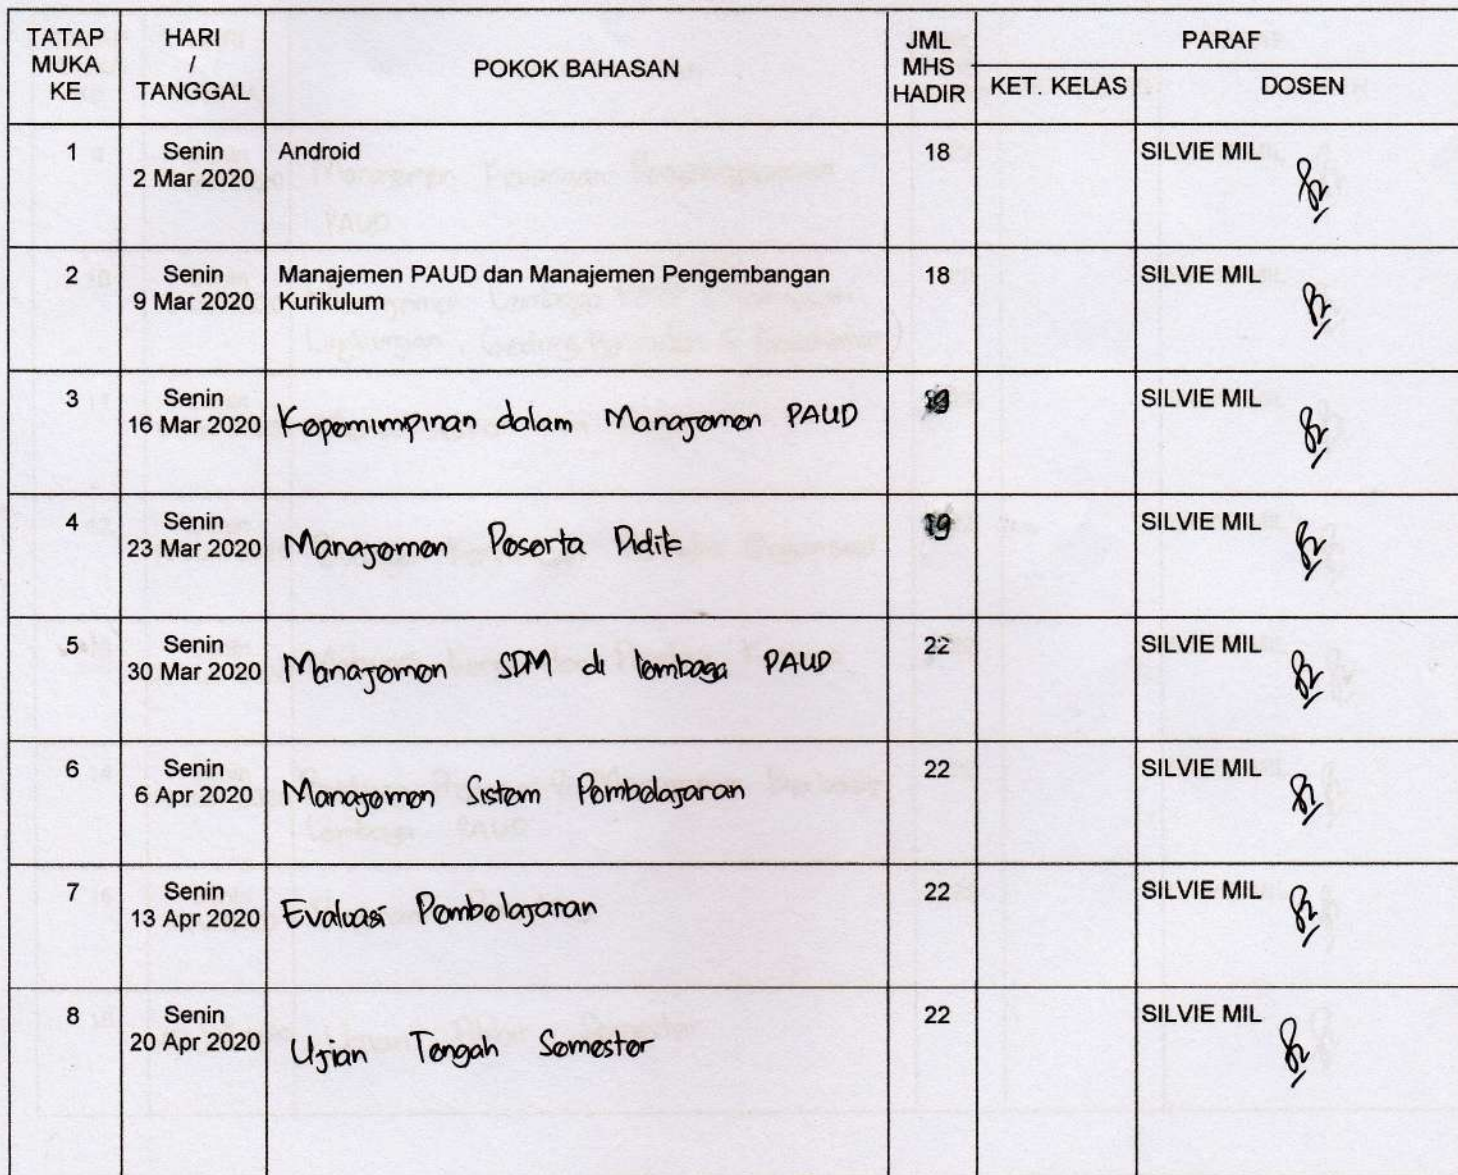 TATAP MUKA KE
HARI / TANGGAL
POKOK BAHASAN
JML MHS HADIR
PARAF
KET. KELAS
DOSEN
1
Senin
2 Mar 2020
Android
18
SILVIE MIL
2
Senin
9 Mar 2020
Manajemen PAUD dan Manajemen Pengembangan
Kurikulum
18
SILVIE MIL
3
Senin
16 Mar 2020
Kepemimpinan dalam Manajemen PAUD
SILVIE MIL
4
Senin
23 Mar 2020
Manajemen Peserta Didik
19
SILVIE MIL
5
Senin
30 Mar 2020
Manajemen SDM di lembaga PAUD
22
SILVIE MIL
6
Senin
6 Apr 2020
Manajemen Sistem Pembelajaran
22
SILVIE MIL
7
Senin
13 Apr 2020
Evaluasi Pembelajaran
22
SILVIE MIL
8
Senin
20 Apr 2020
Ujian Tengah Semester
22
SILVIE MIL